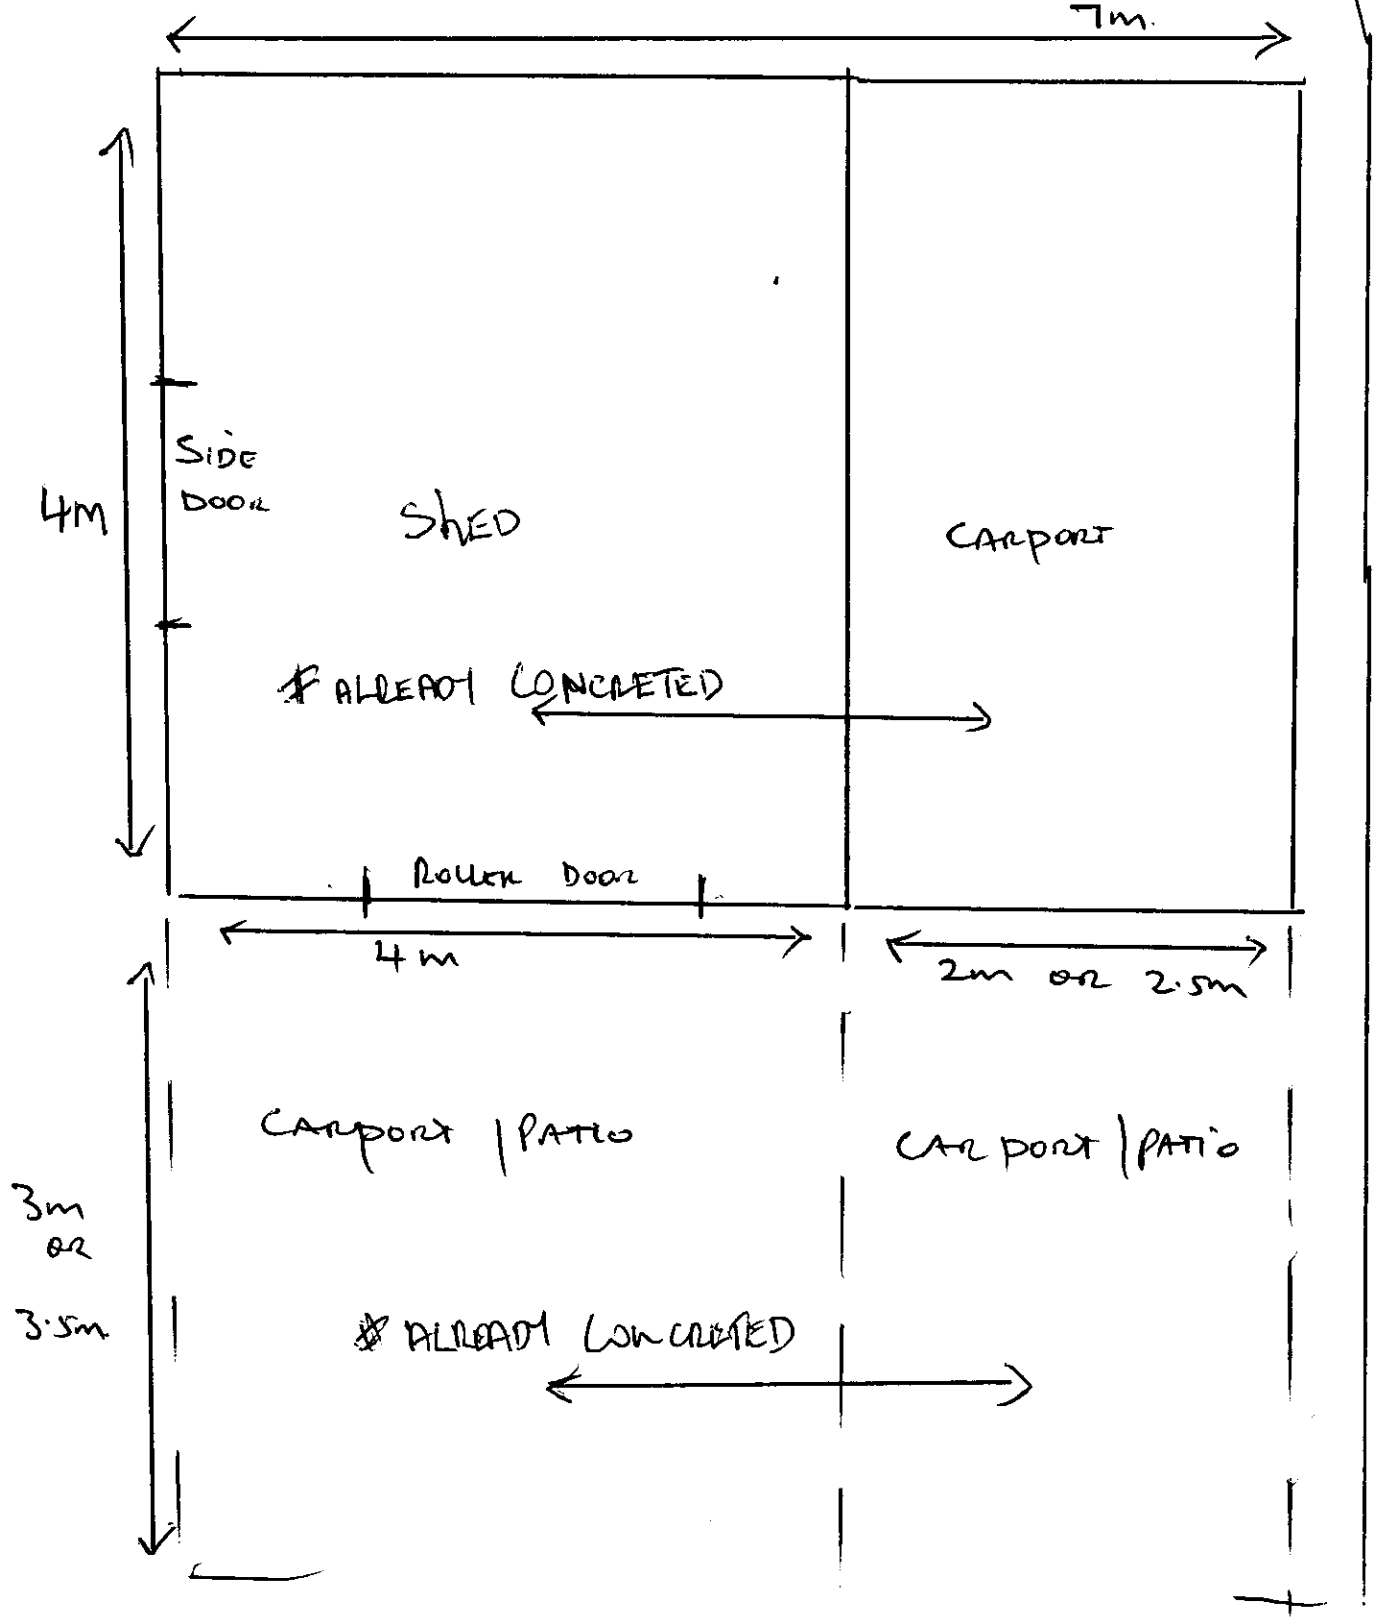 7m.
4M
SIDE
DOOR
ShED
CARPORT
* ALREADY CONCRETED
ROLLER DOOR
4m
2m OR 2.5m
CARPORT / PATIO
CARPORT / PATIO
3m
OR
3.5m
* ALREADY CONCRETED